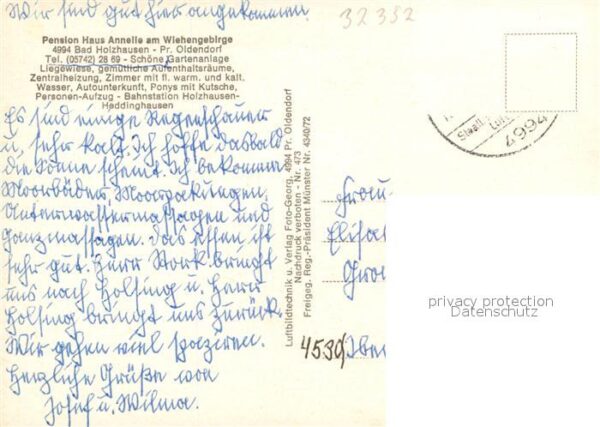 Wir sind gut hier angekommen.
32352
Pension Haus Annelie am Wiehengebirge
4994 Bad Holzhausen - Pr. Oldendorf
Tel. (05742) 28 69 - Schöne Gartenanlage
Liegewiese, gemütliche Aufenthaltsräume,
Zentralheizung, Zimmer mit fl. warm. und kalt.
Wasser, Autounterkunft, Ponys mit Kutsche,
Personen-Aufzug - Bahnstation Holzhausen-
Heddinghausen
Es sind einige Regenschauer
u. sehr kalt. Ich hoffe das bald
die Sonne scheint. Ich bekomme
Moorbäder, Moorpackungen,
Unterwassermassagen und
Ganzmassagen. Das essen ist
sehr gut. Herr Stork bringt
uns nach Holsing u. Herr
Holsing bringt uns zurück.
Wir gehen viel spazieren.
Herzliche Grüße von
Josef u. Wilma.
Luftbildtechnik u. Verlag Foto-Georg, 4994 Pr. Oldendorf
Nachdruck verboten - Nr. 473
Freigeg. Reg.-Präsident Münster Nr. 4340/72
Staatl.
4994
Frau
Elisa
4530
privacy protection
Datenschutz